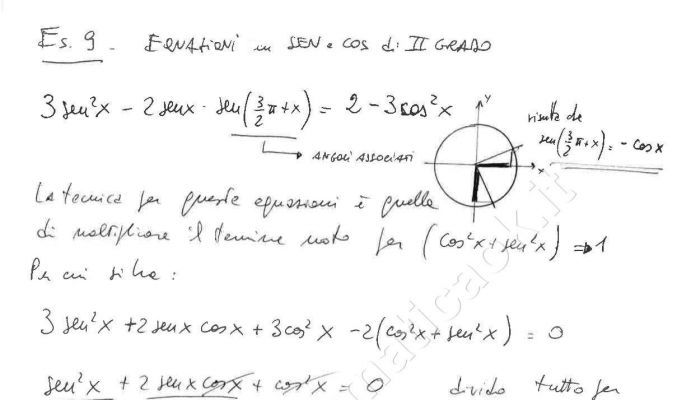 Es. 9 - EQUAZIONI in SEN e COS di II GRADO
3 sen²x - 2 senx · sen(3/2 π + x) = 2 - 3 cos²x
ANGOLI ASSOCIATI
y
x
risulta che
sen(3/2 π + x) = - cosx
La tecnica per queste equazioni è quella
di moltiplicare il termine noto per (cos²x + sen²x) ⇒ 1
Per cui si ha:
3 sen²x + 2 senx cosx + 3cos²x - 2(cos²x + sen²x) = 0
sen²x + 2 senx cosx + cos²x = 0 divido tutto per